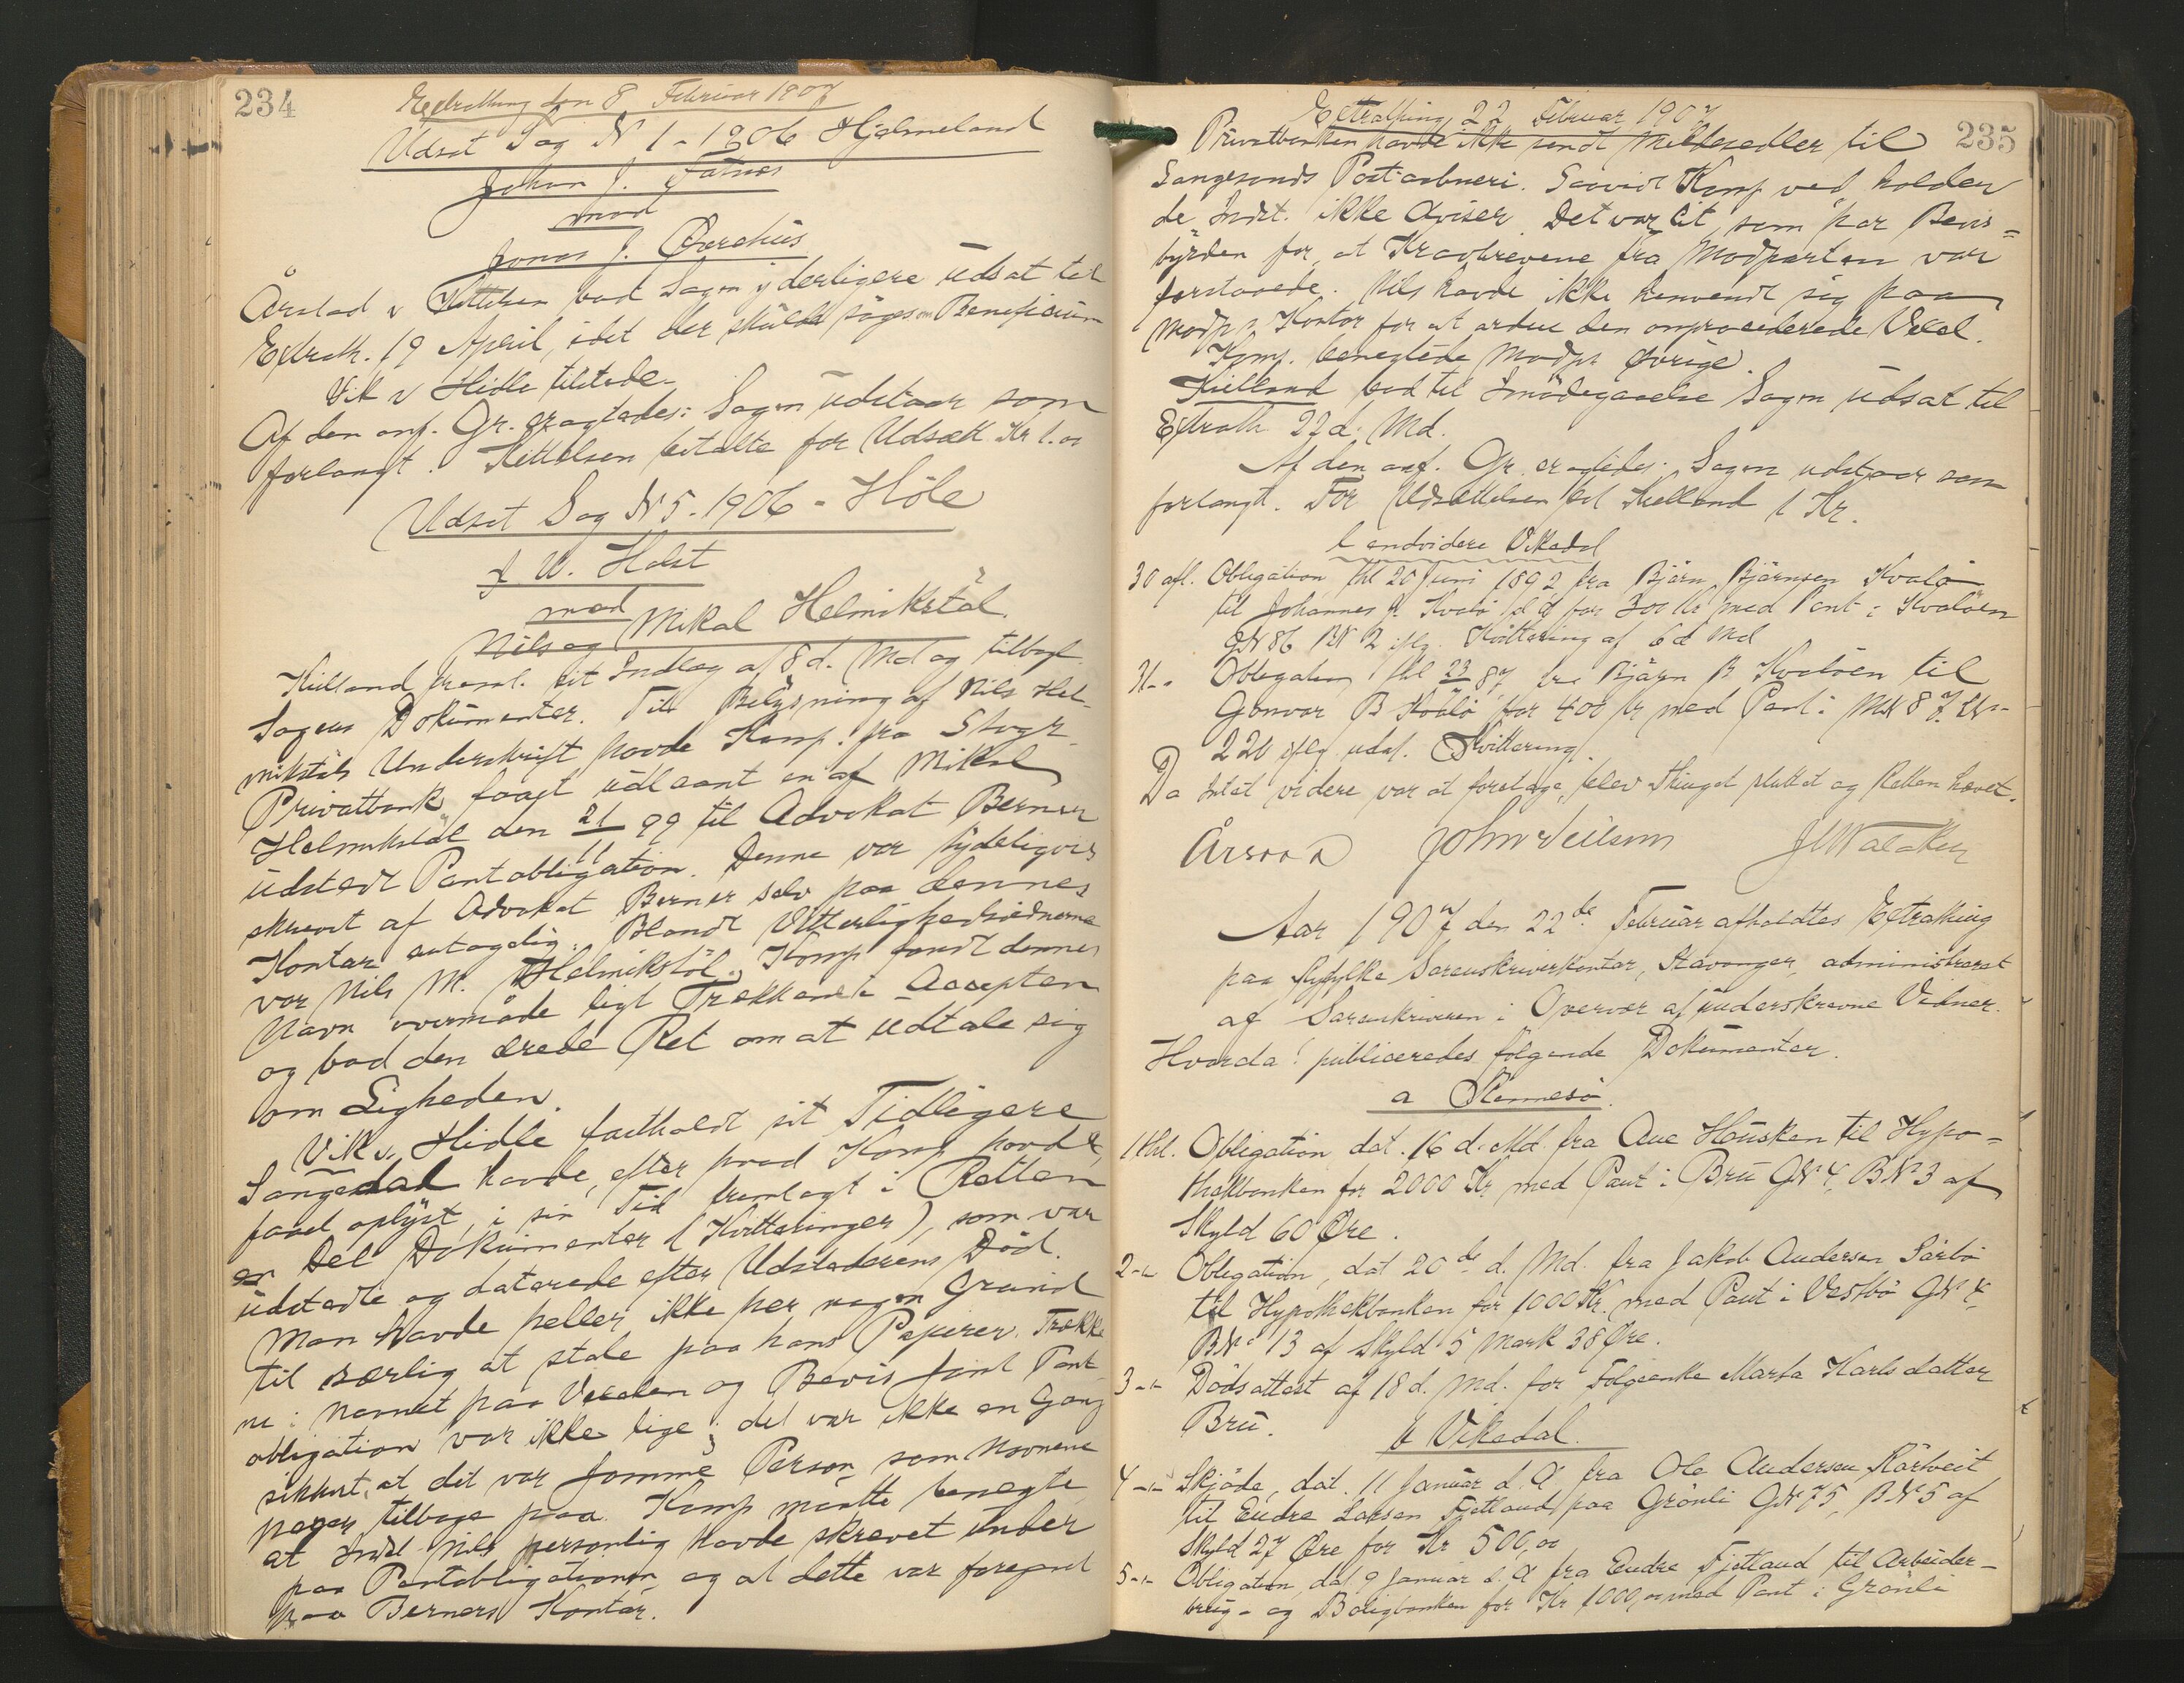 234
Extratting den 8 Februar 1907
Udsat Sag N 1 - 1906 Hjelmeland
Johan J.
mod
Jonas J.
Årstad v Kittelsen bad Sagen yderligere udsat til
Extrath. 19 April, idet der skulde søges om Beneficium
Vik v Hidle tilstede.
Af den anf. Gr. eragtedes: Sagen udstaar som
forlangt. Kittelsen betalte for Udsæt. Kr 1.00
Udsat Sag N 5 - 1906 - Höle
W. Holst
mod
Nils og Mikal Helmikstöl.
Kielland freml. sit Indlæg af 8 d. Md og tilbagl.
Sagens Dokumenter. Til Belysning af Nils Hel-
mikstöls Underskrift havde Komp. fra Stvgr.
Privatbank faaet udlaant en af Mikal
Helmikstöl den 21/11 99 til Advokat Berner
udstedt Pantobligation. Denne var tydeligvis
skrevet af Advokat Berner selv paa dennes
Kontor antagelig. Blandt Vitterlighedsvidnerne
var Nils M. Helmikstöl. Komp fandt dennes
Navn overmåde ligt Trækkene i Accepten
og bad den ærede Ret om at udtale sig
om Ligheden.
Vik v. Hidle fastholdt sit Tidligere
Sangesdal havde, efter hvad Komp havde
faaet oplyst, i sin Tid fremlagt i Retten
en Del Dokumenter (Kvitteringer), som var
udstedte og daterede efter Udstederens Död.
Man havde heller ikke her nogen Grund
til særlig at stole paa hans Papirer. Trække
ne i Navnet paa Vexelen og Bevis samt Pant
obligation var ikke lige; det var ikke en Gang
sikkert, at det var samme Person, som Navnene
peger tilbage paa. Komp måtte benegte
at Indst. Nils personlig havde skrevet under
paa Pantobligationen og at dette var foregaaet
paa Berners Kontor.
235
Extratting 22 Februar 1907
Privatbanken havde ikke sendt Meldesedler til
Sangesands Postaabneri. Saavidt Komp ved holder
de Indst. ikke Aviser. Det var Cit, som har Bevis=
byrden for, at Kravbrevene fra Modparten var
forstaaede. Nils havde ikke henvendt sig paa
Modp.s Kontor for at ordne den omprocederede Vexel.
Komp. benegtede Modps övrige.
Kielland bad til Imödegaaelse Sagen udsat til
Extrath 22 d. Md.
Af den anf. Gr. eragtedes: Sagen udstaar som
forlangt. For Udsættelsen bet Kielland 1 Kr.
b endvidere Vikedal
30 afl. Obligation thl 20 Juni 1892 fra Björn Björnsen Kvalö
til Johannes J. Kvalö for 300 Kr med Pant i Kvalöen
GN 86 BN 2 iflg. Kvittering af 6 d Md
31 - " Obligation thl 23/8 7 fra Björn B Kvalöen til
Gunvor B Kvalö for 400 Kr med Pant i
iflg udat. Kvittering.
Da Intet videre var at foretage, blev Thinget sluttet og Retten hævet.
John Neilson
Aar 1907 den 22de Februar afholdtes Extrathing
paa Ryfylke Sorenskriverkontor, Stavanger, administreret
af Sorenskriveren i Overvær af underskrevne Vidner.
Hvorda: publiceredes følgende Dokumenter.
a Rennesö.
1 thl. Obligation, dat. 16 d. Md. fra Ane Hausken til Hypo=
thekbanken for 2000 Kr. med Pant i Bru GN 4, BN 3 af
Skyld 60 Øre.
2 -"- Obligation, dat 20de d. Md. fra Jakob Andersen Sörbö
til Hypothekbanken for 1000 Kr. med Pant i Vestbö GN
BNo 13 af Skyld 5 Mark 38 Øre.
3 -"- Dödsattest af 18 d. Md. for Folgeenke Marta Karlsdatter
Bru.
b Vikedal.
4 -"- Skjöde, dat. 11 Januar d. A fra Ole Andersen
til Endre Larsen Fjetland paa Grönli GN 75, BN 5 af
Skyld 27 Øre for Kr 500,00
5 -"- Obligation, dat 9 Januar d. A fra Endre Fjetland til Arbeider-
brug- og Boligbanken for Kr 1000,00 med Pant i Grönli